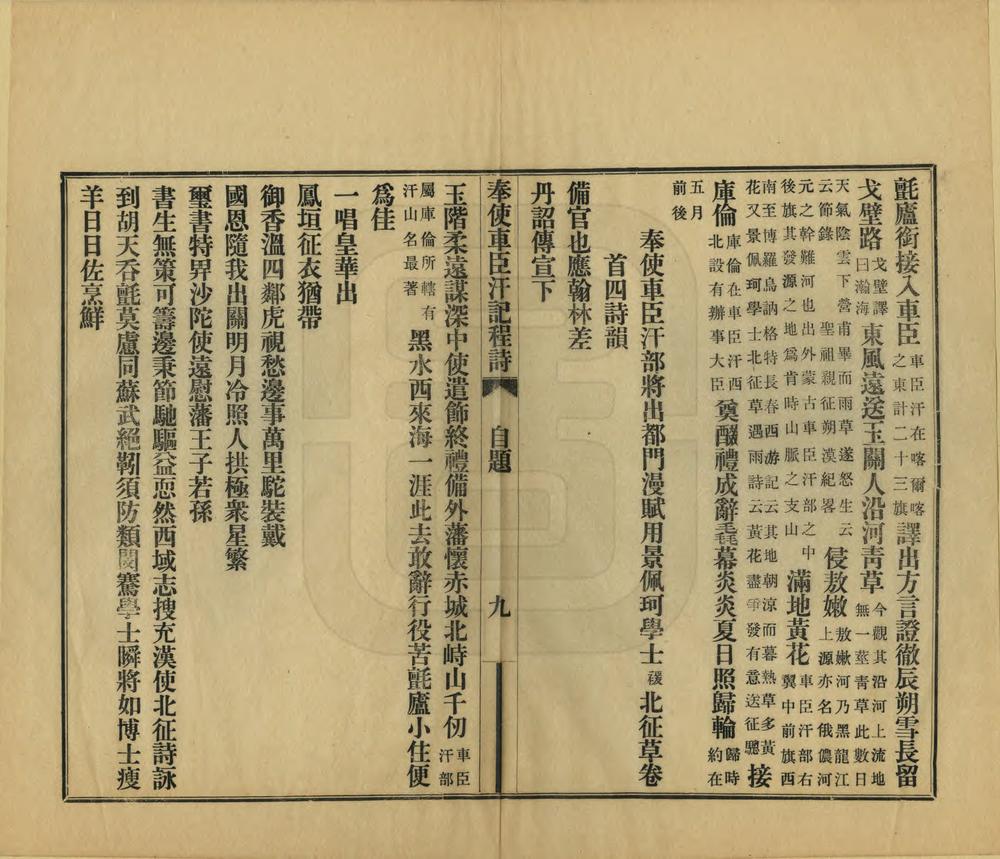 氈廬銜接入車臣車臣汗在喀爾喀之東計二十三旗譯出方言證徹辰朔雪長留
戈壁路戈壁譯曰瀚海東風遠送玉關人沿河靑草今觀其沿河上流地無一莖靑草此數日
天氣陰雲下營甫畢而雨草遂怒生云云節錄 聖祖親征朔漠紀畧侵敖嫩敖嫩河乃黑龍江上源亦名俄儂河
元之幹難河也出外蒙古車臣汗部之中後旗其發源之地爲肯時山脈之支山滿地黃花車臣汗部右翼中前旗西
南至博羅烏訥格特長春西游記云其地朝涼而暮熱草多黃花又景佩珂學士北征草遇雨詩云黃花盡爭發有意送征驄接
庫倫庫倫在車臣汗西北設有辦事大臣奠醊禮成辭毳幕炎炎夏日照歸輪歸時約在
五月前後
奉使車臣汗部將出都門漫賦用景佩珂學士𥙿北征草卷
首四詩韻
備官也應翰林差
丹詔傳宣下
奉使車臣汗記程詩 自題 九
玉階柔遠謀深中使遣飾終禮備外藩懷赤城北峙山千仞車臣汗部
屬庫倫所轄有汗山名最著黑水西來海一涯此去敢辭行役苦氈廬小住便
爲佳
一唱皇華出
鳳垣征衣猶帶
御香溫四鄰虎視愁邊事萬里駝裝戴
國恩隨我出關明月冷照人拱極衆星繁
璽書特畀沙陀使遠慰藩王子若孫
書生無策可籌邊秉節馳驅益恧然西域志搜充漢使北征詩詠
到胡天呑氈莫慮同蘇武絕靷須防類閔騫學士瞬將如博士瘦
羊日日佐烹鮮